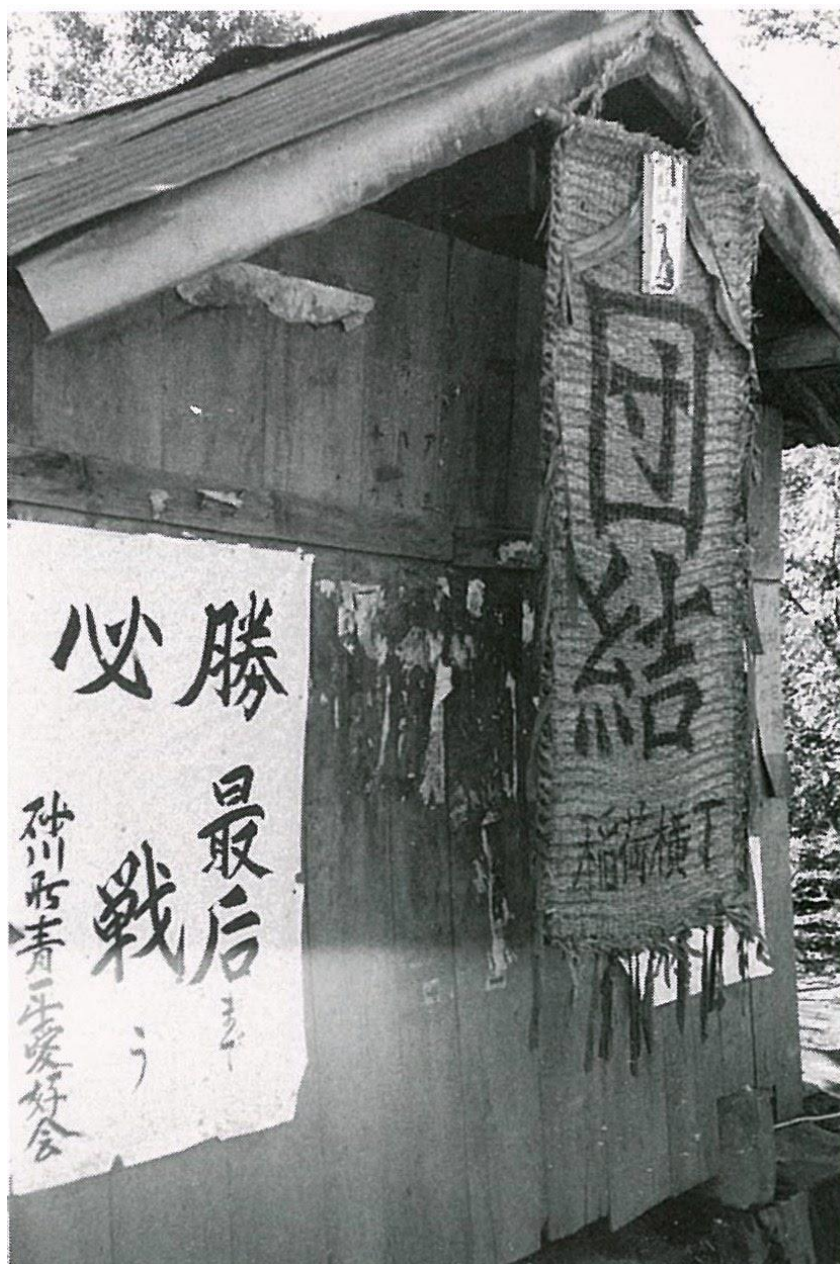 団結
稲荷横丁
必勝
最后まで
戦う
砂川町青年愛好会